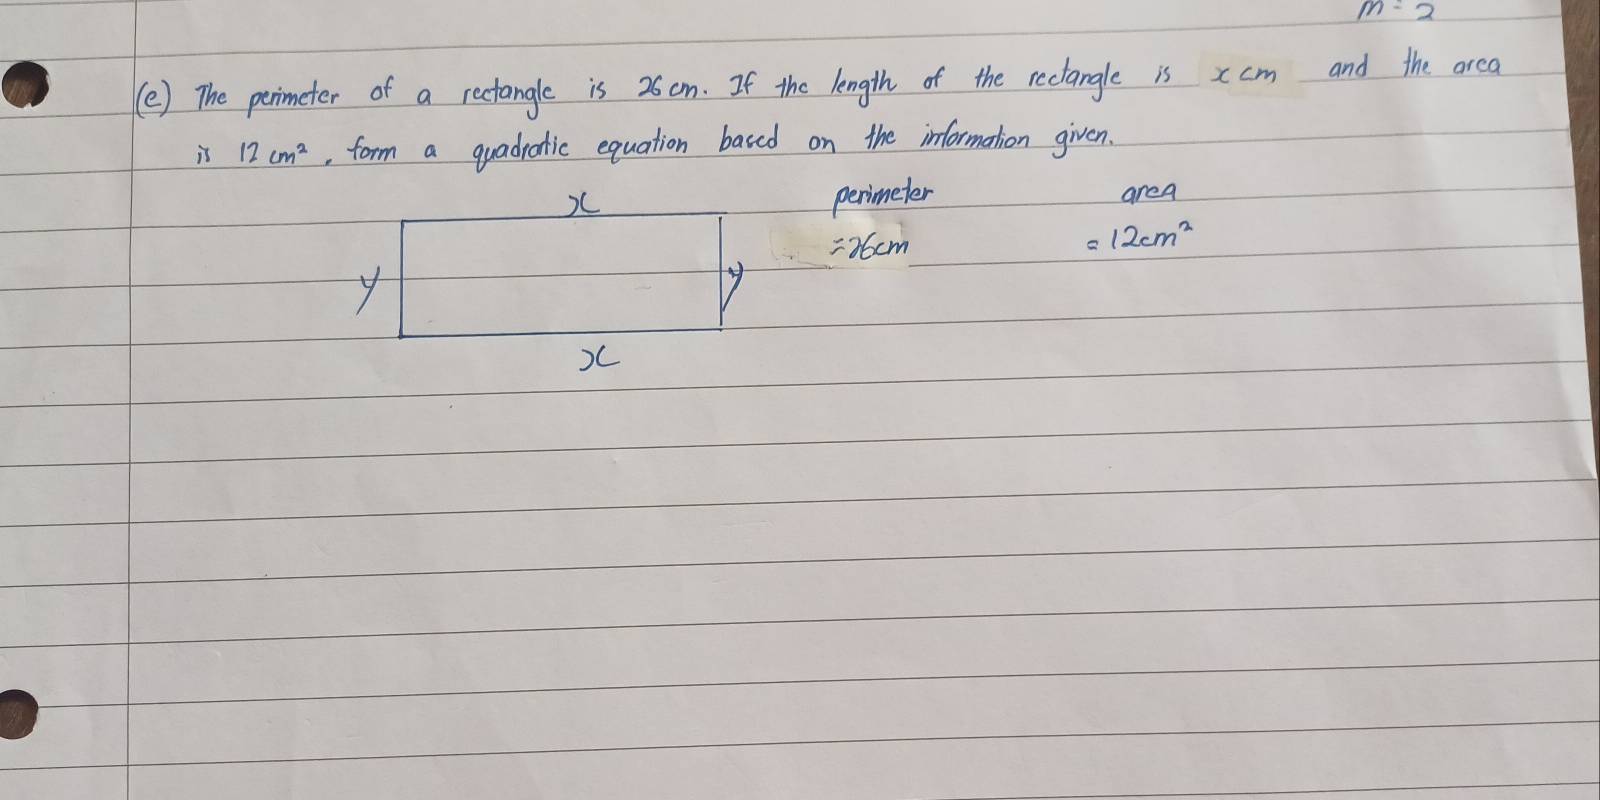 m = 2
(e) The perimeter of a rectangle is 26 cm. If the length of the rectangle is x cm and the area
is 12 cm², form a quadratic equation based on the information given.
x
perimeter area
= 26cm = 12cm²
y y
x